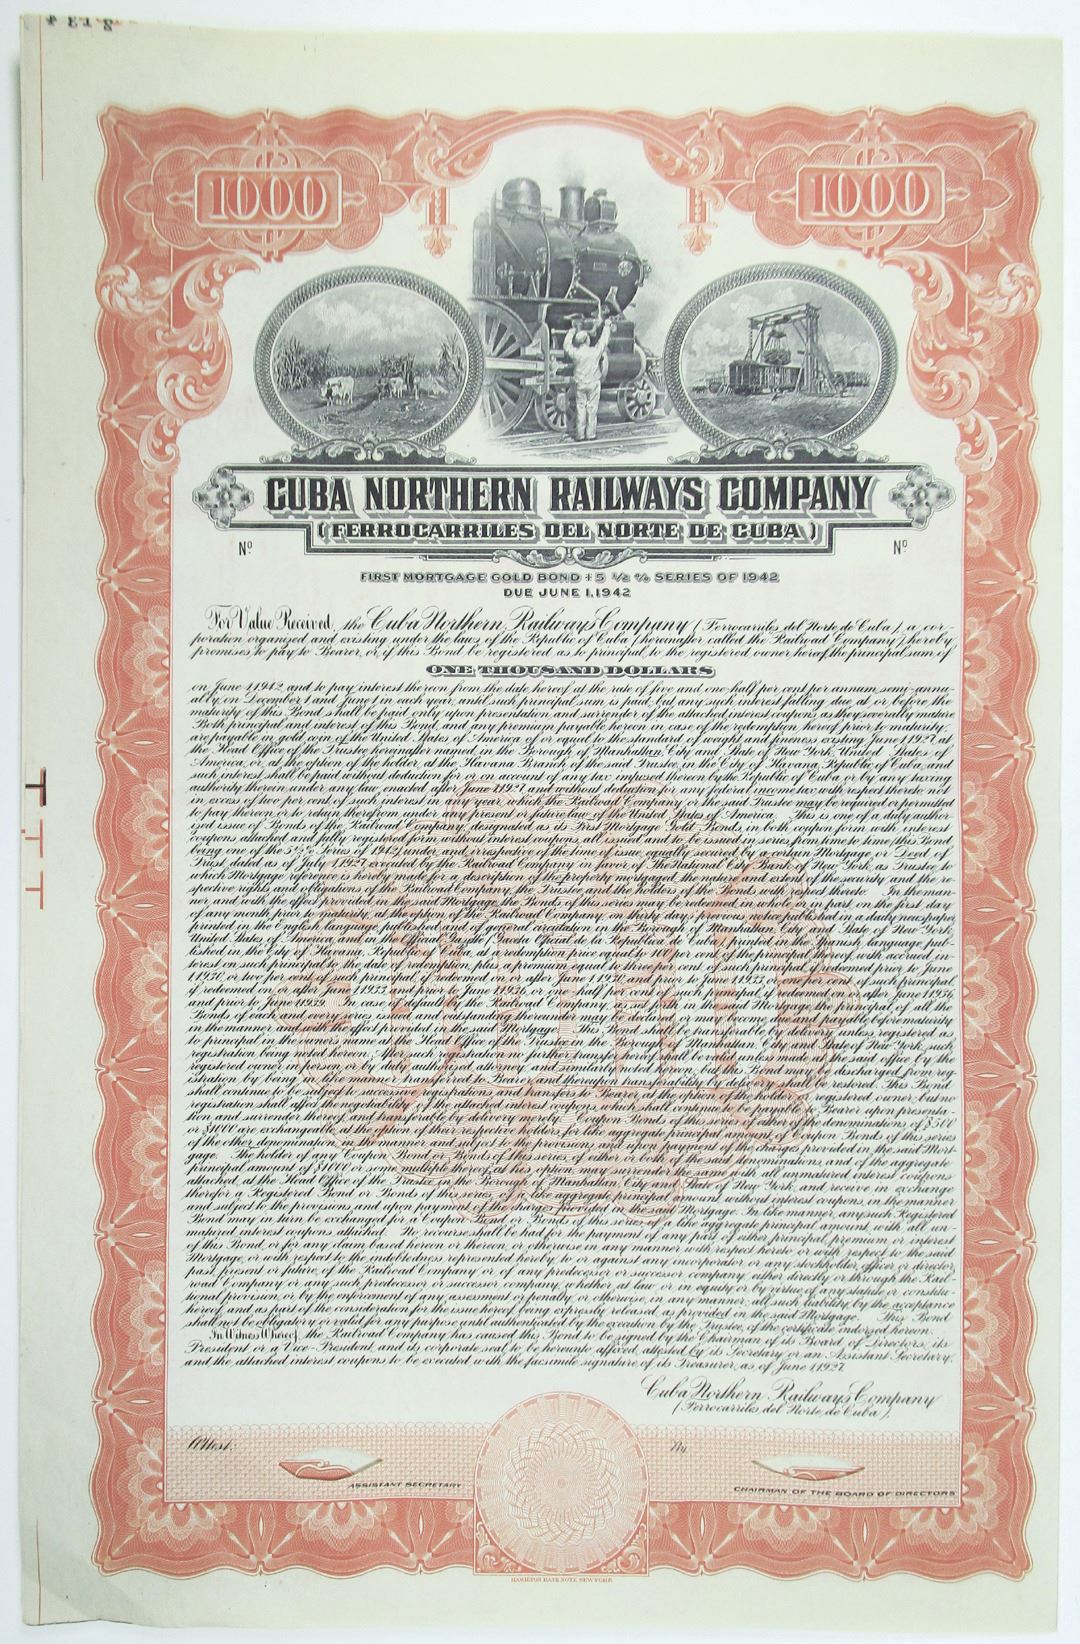 1000 1000
CUBA NORTHERN RAILWAYS COMPANY
(FERROCARRILES DEL NORTE DE CUBA)
Nº Nº
FIRST MORTGAGE GOLD BOND 5 1/2 % SERIES OF 1942
DUE JUNE 1, 1942
For Value Received, the Cuba Northern Railways Company (Ferrocarriles del Norte de Cuba), a cor-
poration organized and existing under the laws of the Republic of Cuba (hereinafter called the Railroad Company) hereby
promises to pay to Bearer, or, if this Bond be registered as to principal, to the registered owner hereof, the principal sum of
ONE THOUSAND DOLLARS
on June 1, 1942, and to pay interest thereon from the date hereof at the rate of five and one-half per cent per annum, semi-annu-
ally, on December 1 and June 1 in each year, until such principal sum is paid, but any such interest falling due at or before the
maturity of this Bond shall be paid only upon presentation and surrender of the attached interest coupons as they severally mature.
Both principal and interest of this Bond, and any premium payable hereon in case of the redemption hereof prior to maturity,
are payable in gold coin of the United States of America, of or equal to the standard of weight and fineness existing June 1, 1927, at
the Head Office of the Trustee hereinafter named, in the Borough of Manhattan, City and State of New York, United States of
America, or, at the option of the holder, at the Havana Branch of the said Trustee, in the City of Havana, Republic of Cuba, and
such interest shall be paid without deduction for or on account of any tax imposed thereon by the Republic of Cuba or by any taxing
authority therein under any law enacted after June 1, 1927, and without deduction for any federal income tax with respect thereto not
in excess of two per cent. of such interest in any year, which the Railroad Company or the said Trustee may be required or permitted
to pay thereon or to retain therefrom under any present or future law of the United States of America. This is one of a duly author-
ized issue of Bonds of the Railroad Company, designated as its First Mortgage Gold Bonds, in both coupon form with interest
coupons attached and fully registered form without interest coupons, all issued and to be issued in series from time to time (this Bond
being one of the 5½% Series of 1942) under, and irrespective of the time of issue, equally secured by a certain Mortgage or Deed of
Trust dated as of July 1, 1927, executed by the Railroad Company in favor of The National City Bank of New York, as Trustee, to
which Mortgage reference is hereby made for a description of the property mortgaged, the nature and extent of the security and the re-
spective rights and obligations of the Railroad Company, the Trustee, and the holders of the Bonds with respect thereto. In the man-
ner and with the effect provided in the said Mortgage, the Bonds of this series may be redeemed, in whole or in part, on the first day
of any month prior to maturity, at the option of the Railroad Company, on thirty days previous notice published in a daily newspaper
printed in the English language, published and of general circulation in the Borough of Manhattan, City and State of New York,
United States of America, and in the Official Gazette (Gaceta Oficial de la Republica de Cuba), printed in the Spanish language, pub-
lished in the City of Havana, Republic of Cuba, at a redemption price equal to 100 per cent of the principal thereof, with accrued in-
terest on such principal to the date of redemption, plus a premium equal to three per cent. of such principal, if redeemed prior to June
1, 1930, or two per cent. of such principal, if redeemed on or after June 1, 1930, and prior to June 1, 1933, or one per cent. of such principal,
if redeemed on or after June 1, 1933, and prior to June 1, 1936, or one-half per cent of such principal, if redeemed on or after June 1, 1936,
and prior to June 1, 1939. In case of default by the Railroad Company, as set forth in the said Mortgage, the principal of all the
Bonds of each and every series issued and outstanding thereunder may be declared, or may become, due and payable before maturity
in the manner and with the effect provided in the said Mortgage. This Bond shall be transferable by delivery, unless registered as
to principal in the owner's name at the Head Office of the Trustee in the Borough of Manhattan, City and State of New York, such
registration being noted hereon. After such registration no further transfer hereof shall be valid unless made at the said office by the
registered owner in person or by duly authorized attorney and similarly noted hereon, but this Bond may be discharged from reg-
istration by being in like manner transferred to Bearer, and thereupon transferability by delivery shall be restored. This Bond
shall continue to be subject to successive registrations and transfers to Bearer, at the option of the holder or registered owner, but no
registration shall affect the negotiability of the attached interest coupons, which shall continue to be payable to Bearer upon presenta-
tion and surrender thereof and transferable by delivery merely. Coupon Bonds of this series of either of the denominations of $500
or $1000 are exchangeable, at the option of their respective holders, for like aggregate principal amount of Coupon Bonds of this series
of the other denomination, in the manner and subject to the provisions and upon payment of the charges provided in the said Mort-
gage. The holder of any Coupon Bond or Bonds of this series, of either or both of the said denominations, and of the aggregate
principal amount of $1000 or some multiple thereof, at his option, may surrender the same with all unmatured interest coupons
attached, at the Head Office of the Trustee in the Borough of Manhattan, City and State of New York, and receive in exchange
therefor a Registered Bond or Bonds of this series, of a like aggregate principal amount, without interest coupons, in the manner
and subject to the provisions and upon payment of the charges provided in the said Mortgage. In like manner, any such Registered
Bond may in turn be exchanged for a Coupon Bond or Bonds of this series of a like aggregate principal amount, with all un-
matured interest coupons attached. No recourse shall be had for the payment of any part of either principal, premium or interest
of this Bond, or for any claim based hereon or thereon, or otherwise in any manner with respect hereto or with respect to the said
Mortgage, or with respect to the indebtedness represented hereby, to or against any incorporator or any stockholder, officer or director,
past, present or future, of the Railroad Company or of any predecessor or successor company, either directly or through the Rail-
road Company or any such predecessor or successor company, whether at law or in equity or by virtue of any statute or constitu-
tional provision, or by the enforcement of any assessment or penalty or otherwise, in any manner, all such liability, by the acceptance
hereof, and as part of the consideration for the issue hereof, being expressly released, as provided in the said Mortgage. This Bond
shall not be obligatory or valid for any purpose until authenticated by the execution by the Trustee, of the certificate indorsed hereon.
In Witness Whereof, the Railroad Company has caused this Bond to be signed by the Chairman of its Board of Directors, its
President or a Vice-President, and its corporate seal to be hereunto affixed, attested by its Secretary or an Assistant Secretary,
and the attached interest coupons to be executed with the facsimile signature of its Treasurer, as of June 1, 1927.
Cuba Northern Railways Company
(Ferrocarriles del Norte de Cuba),
Attest: By
ASSISTANT SECRETARY CHAIRMAN OF THE BOARD OF DIRECTORS
HAMILTON BANK NOTE NEW YORK